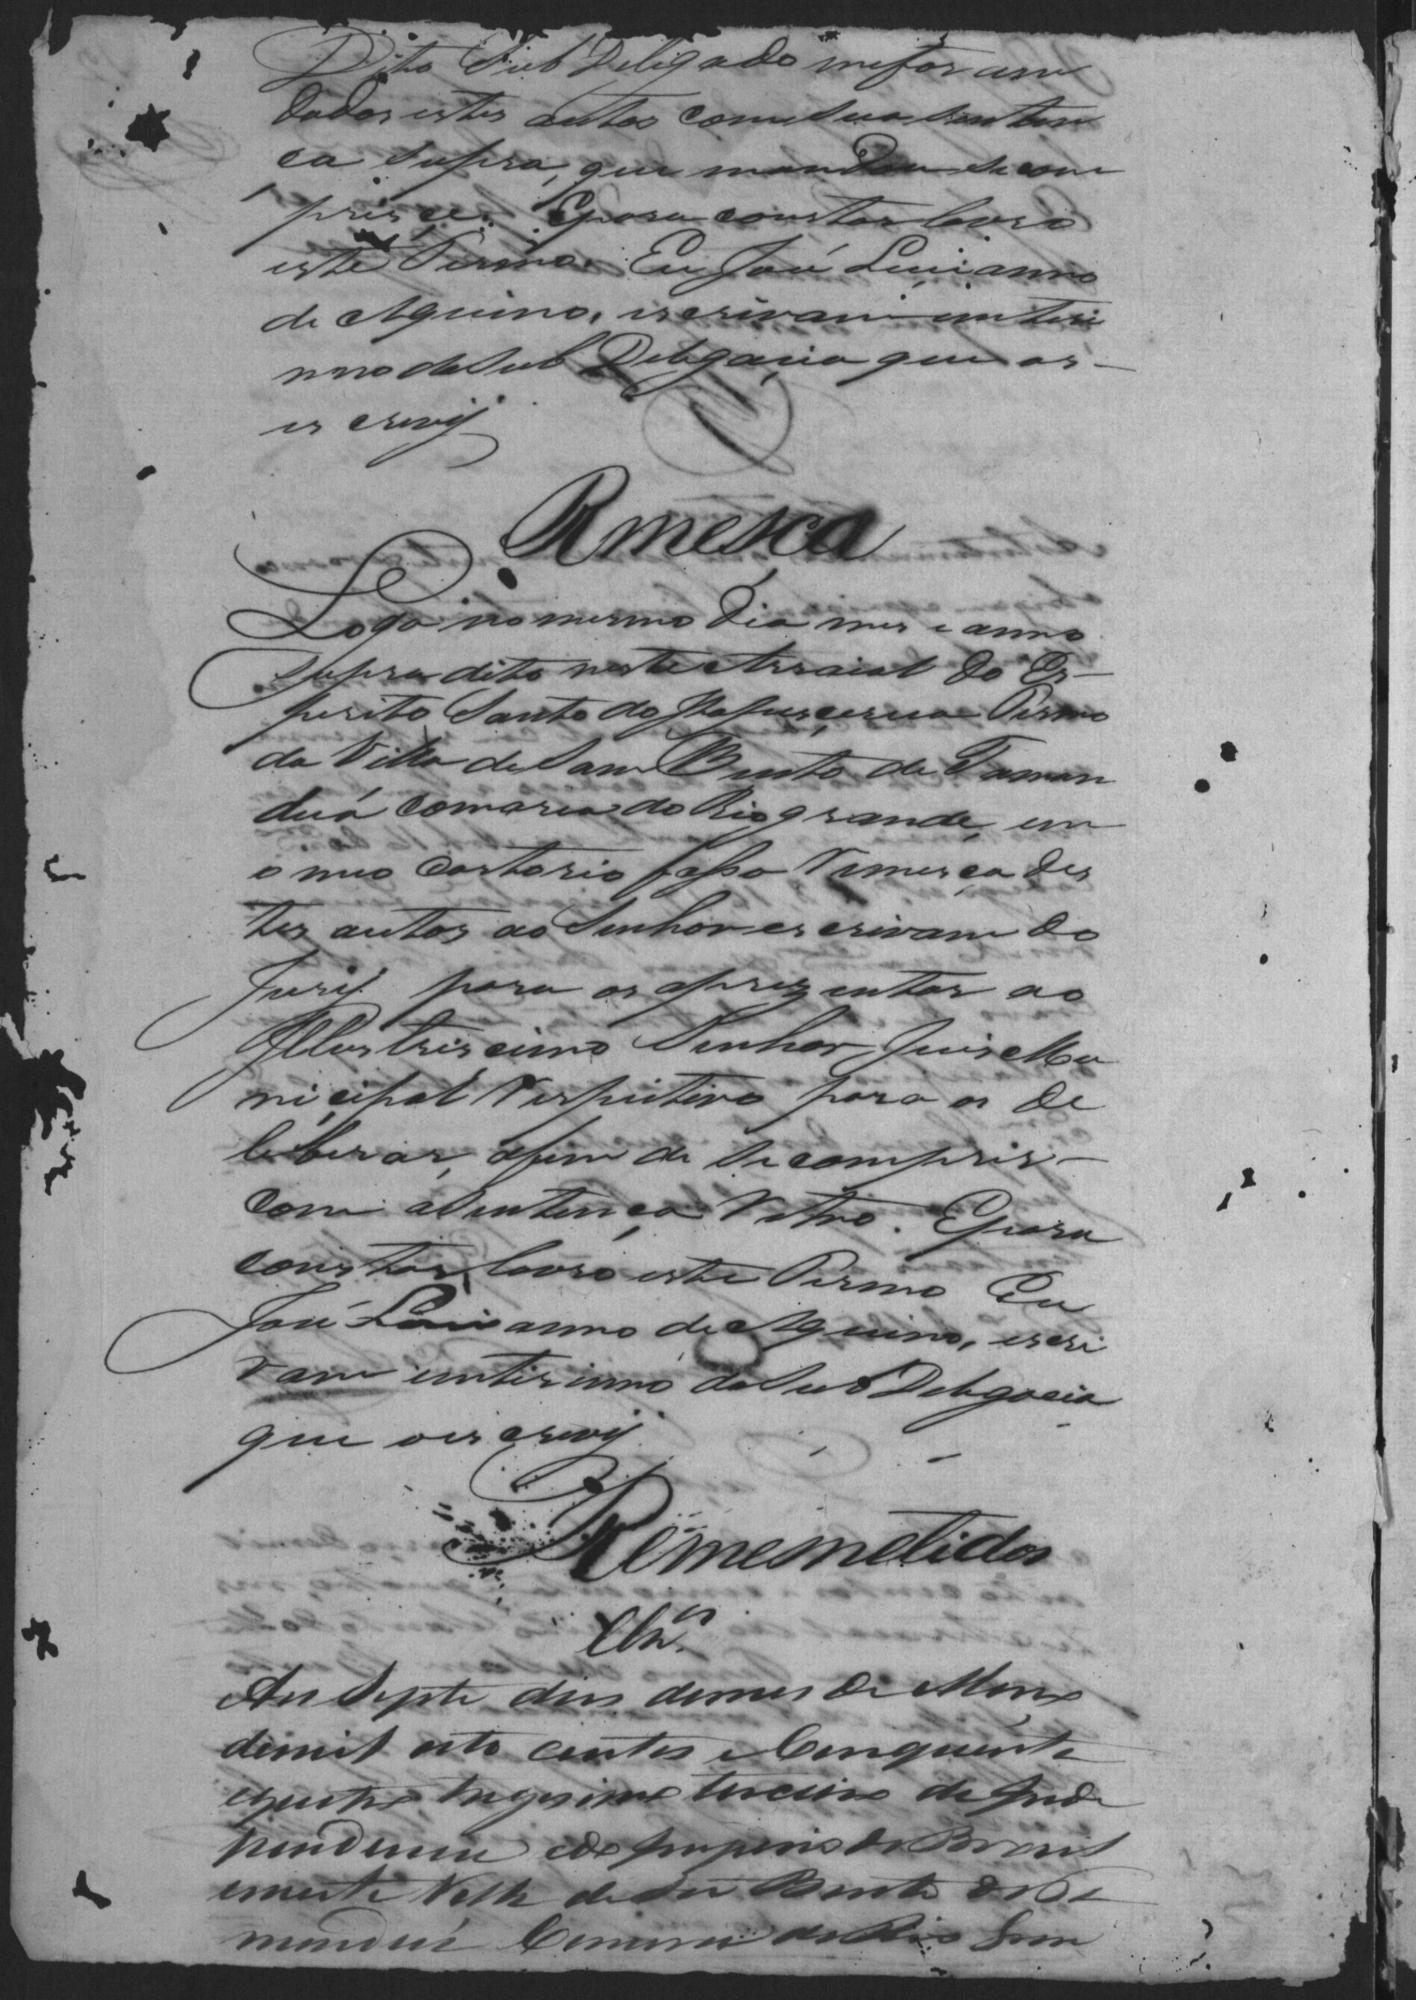 Dito Sub Delegado me foram
dados estes autos com sua senten
ca supra, que mandou se com
prisce. Epara constar lavro
este Termo. Eu José Lucianno
de Aquino, escrivam interi
nno da Sub Delegacia que os
escrevij
Rmesca
Logo no mesmo dia mes e anno
supra dito neste Arraial do Es-
perito Santo do Itapecerica Termo
da Villa de Sam Bento de Taman
duá comarca do Rio grande, em
o meo Cartorio fasso Rmesça des
tes autos ao Senhor escrivam do
Jurij para os aprezentar ao
Illustriscimo Senhor Juis Mu
nicipal Respeitivo para os de
liberar, afim de se comprir-
com a Sentença Retro. Epara
constar, lavro este Termo Eu
José Lucianno de Aquino, escri
vam interinno da Sub Delegacia
que os escrevij
Rememetidos
Aos Septe dias do mes de Março
demil oito centos e Cinquenta
equatro trigesimo terceiro da Inde
pendencia e do Imperio do Brasil
em esta Villa de São Bento do Ta
manduá Comarca do Rio Gran